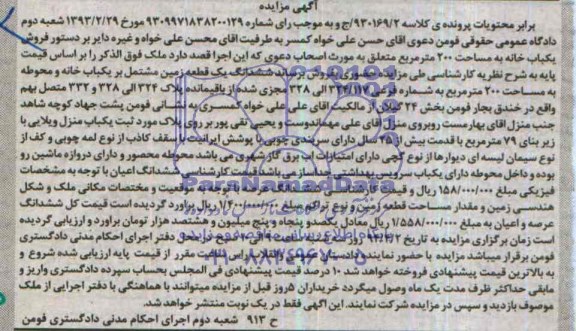 آگهی مزایده
برابر محتویات پرونده ی کلاسه ۹۳۰۱۶۹/۲/ج و به موجب رای شماره ۹۳۰۹۹۷۱۸۳۸۲۰۰۱۲۹ مورخ ۱۳۹۳/۲/۲۹ شعبه دوم
دادگاه عمومی حقوقی فومن دعوی آقای حسن علی خواه کسمر به طرفیت آقای محسن علی خواه و غیره دایر بر دستور فروش
یکباب خانه به مساحت ۲۰۰ مترمربع متعلق به مورث اصحاب دعوی که این اجرا قصد دارد ملک فوق الذکر را بر اساس قیمت
پایه به شرح نظریه کارشناسی طی مزایده حضوری بفروش برساند ششدانگ یک قطعه زمین مشتمل بر یکباب خانه و محوطه
به مساحت ۲۰۰ مترمربع به شماره فرعی ۳۲۸ مجزی شده از باقیمانده پلاک ۳۲۴ الی ۳۲۸ و ۳۳۲ متصل بهم
واقع در خندق بجار فومن بخش ۲۴ گیلان از مالکیت آقای علی علی خواه کسمری به نشانی فومن پشت جهاد کوچه شاهد
جنب منزل آقای بهارمست روبروی منزل آقای علی مهماندوست و یحیی تقی پور بر روی پلاک مورد ثبت یکباب منزل ویلایی با
زیر بنای ۷۹ مترمربع با قدمت بیش از ۲۵ سال دارای سربندی چوبی با پوشش ایرانیت با سقف کاذب از نوع لمه چوبی و کف از
نوع سیمان لیسه ای دیوارها از نوع گچی دارای امتیازات آب برق گاز شهری می باشد محوطه محصور و دارای دروازه ماشین رو
بوده و داخل محوطه دارای یکباب سرویس بهداشتی جداساز می باشد قیمت کارشناسی ششدانگ اعیان با توجه به مشخصات
فیزیکی مبلغ ۱۵۸/۰۰۰/۰۰۰ ریال و قیمت موقعیت و مختصات مکانی ملک و شکل
هندسی زمین و مقدار مساحت قطعه زمین و نوع تراکم مبلغ ۱/۴۰۰/۰۰۰/۰۰۰ ریال برآورد گردیده است قیمت کل ششدانگ
عرصه و اعیان به مبلغ ۱/۵۵۸/۰۰۰/۰۰۰ ریال معادل یکصد و پنجاه و پنج میلیون و هشتصد هزار تومان برآورد و ارزیابی گردیده
است زمان برگزاری مزایده به تاریخ روز سه شنبه ساعت صبح در محل دفتر اجرای احکام مدنی دادگستری
فومن برقرار میباشد مزایده با حضور نماینده دادستان عمومی و انقلاب راس ساعت مقرر از قیمت پایه ارزیابی شده شروع و
به بالاترین قیمت پیشنهادی فروخته خواهد شد ۱۰ درصد قیمت پیشنهادی فی المجلس بحساب سپرده دادگستری واریز و
مابقی حداکثر ظرف مدت یک ماه وصول میگردد خریداران ۵روز قبل از مزایده میتوانند با هماهنگی با دفتر اجرایی از ملک
موصوف بازدید و سپس در مزایده شرکت نمایند. این آگهی فقط در یک نوبت منتشر خواهد شد.
ح ۹۱۳ شعبه دوم اجرای احکام مدنی دادگستری فومن
ParsNamadData
۸۸۳۴۹۶۷۰